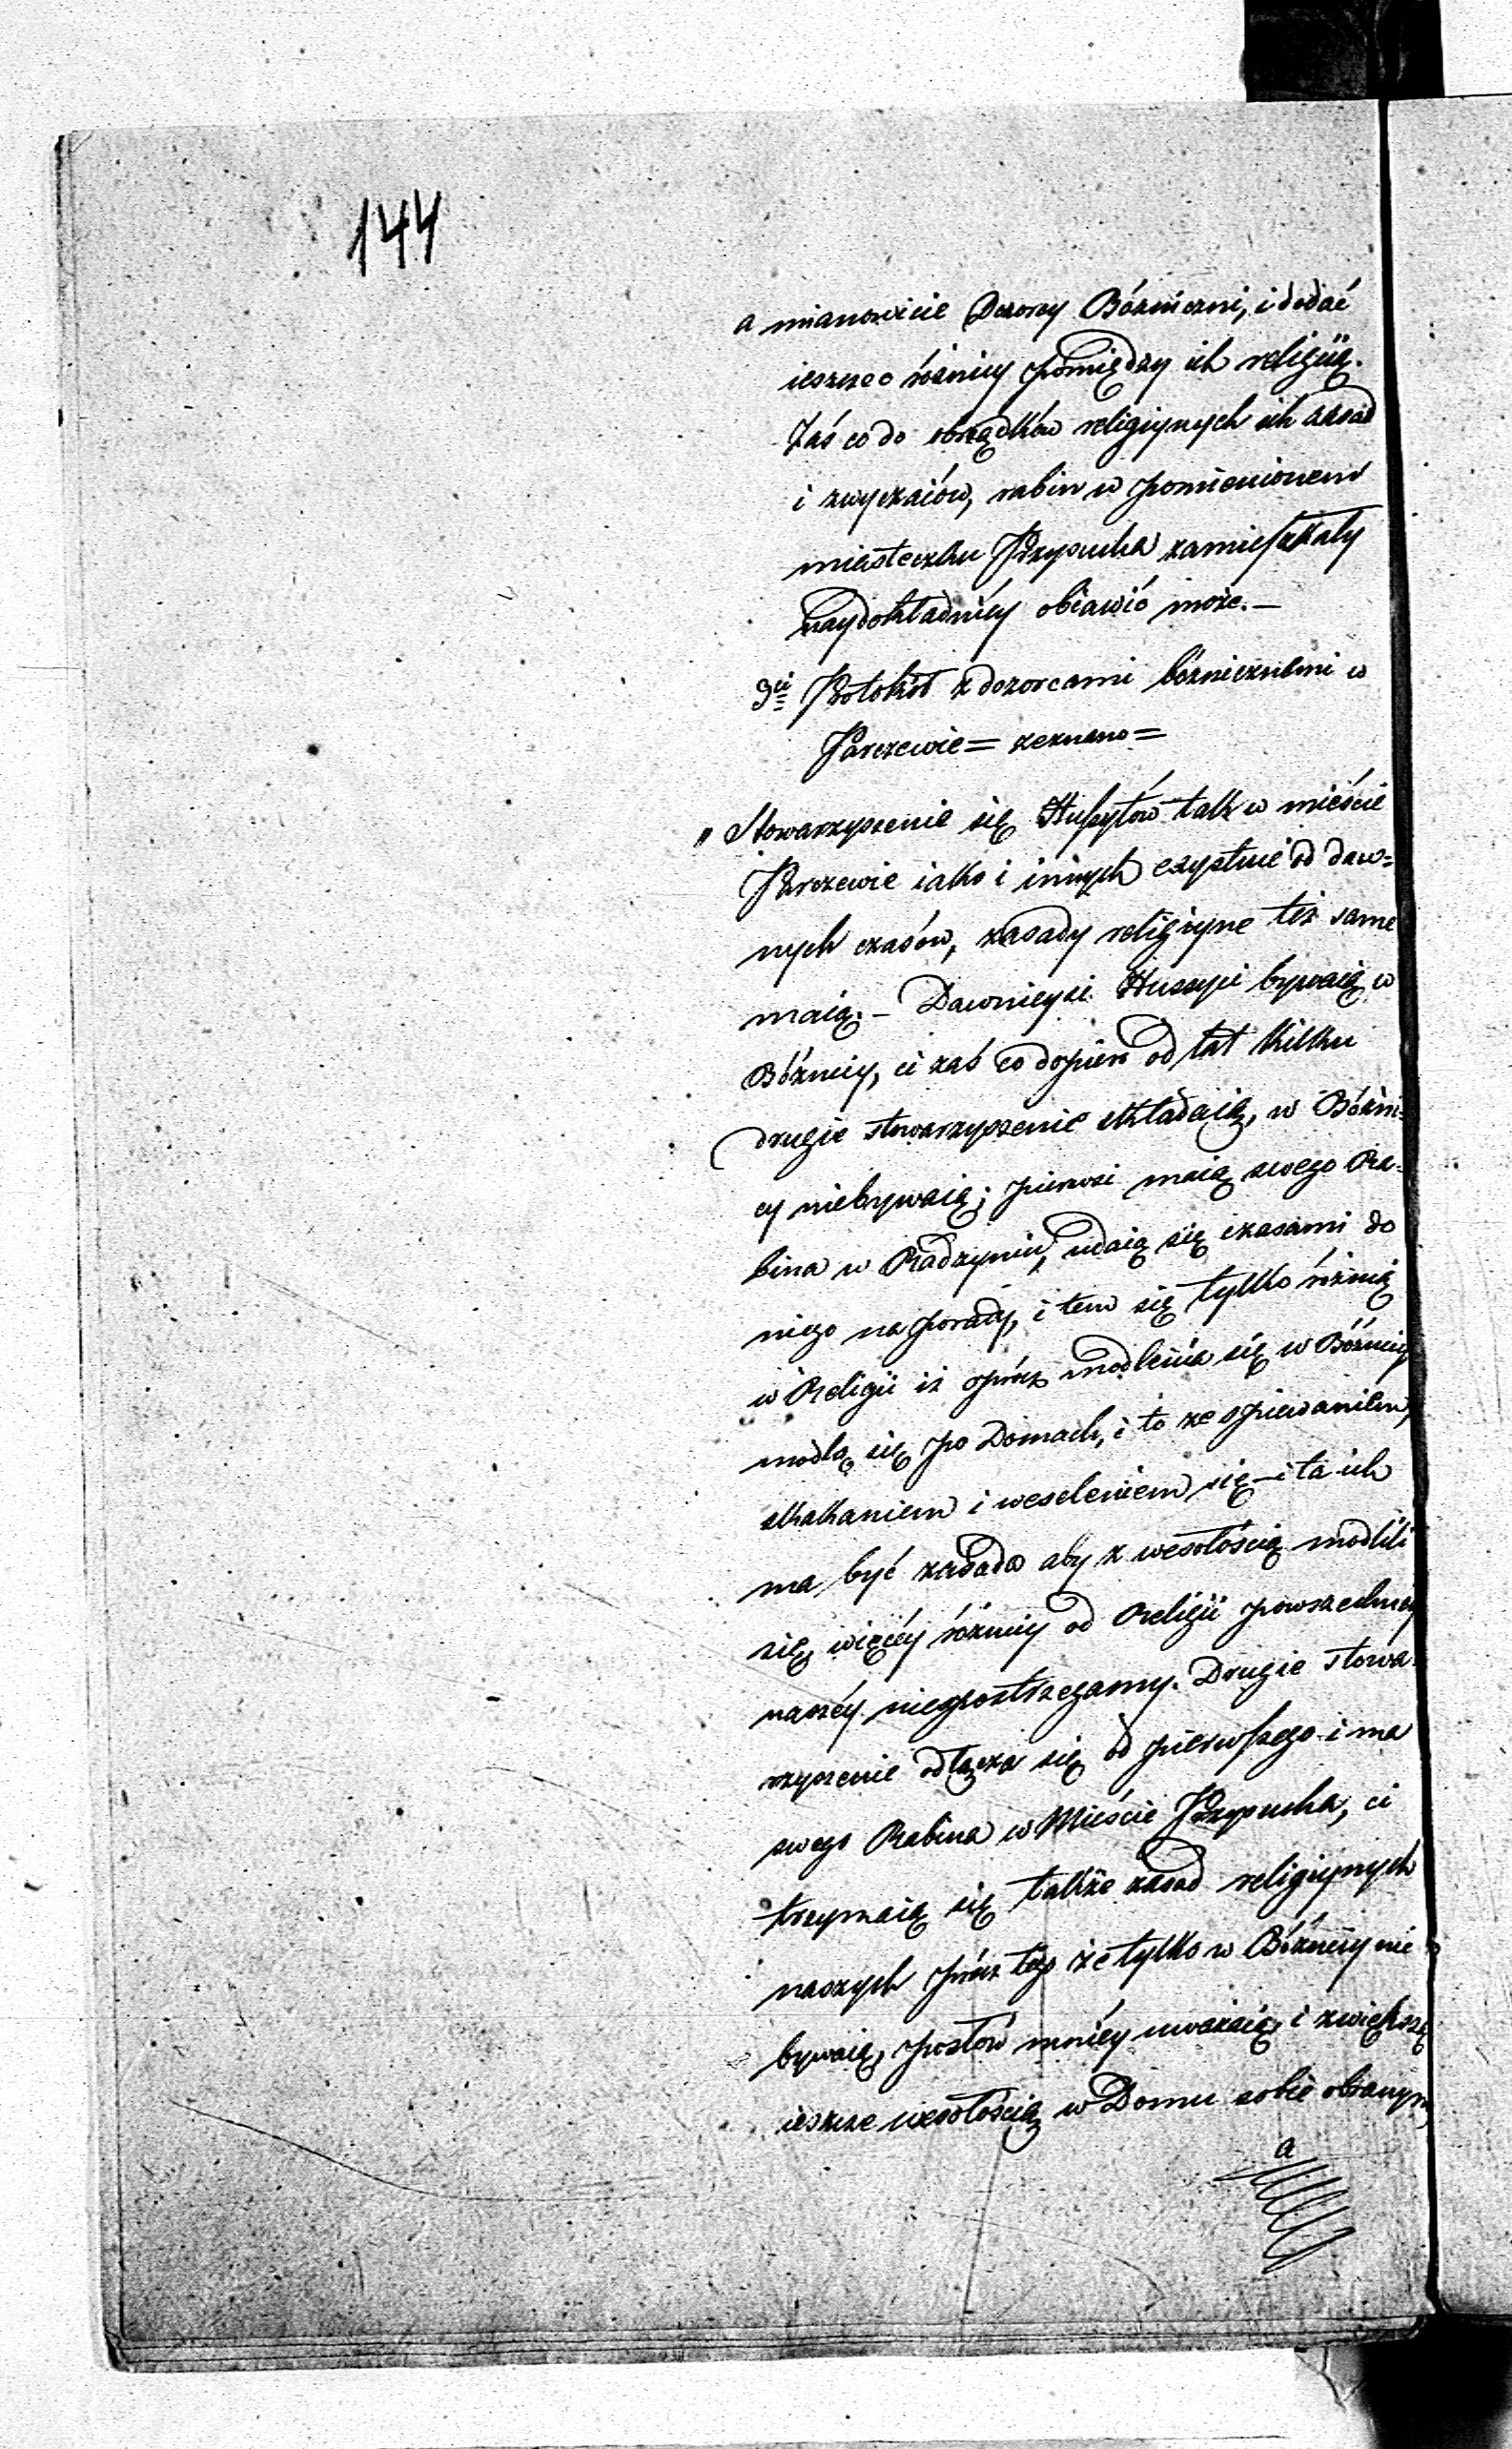 144
a mianowicie Dozorcy Bóżniczni, i dodać
ieszcze o różnicy pomiędzy ich religiią.
Zaś co do obrządków religiynych ich zasad
i zwyczaiów, rabin w pomienionem
miasteczku Przysucha zamieszkały
naydokładniey obiawić może. —
3ci Protokół z dozorcami bóżnicznemi w
Parczewie = zeznano =
„ Stowarzyszenie się Hussytów tak w mieście
Parczewie iako i innych exystuie od daw=
nych czasów, zasady religiyne też same
maią. — Dawnieysi Hussyci bywaią w
Bóżnicy, ci zaś co dopiero od lat kilku
drugie stowarzyszenie składaią, w Bóżni=
cy niebywaią; pierwsi maią swego Ra=
bina w Radzyniu, udaią się czasami do
niego na porady, i tem się tylko różnią
w Religii iż oprócz modlenia się w Bóżnicy
modlą się po Domach, i to ze spiewaniem,
skakaniem i weseleniem się — i ta ich
ma być zasada aby z wesołością modlili
się, więcéy różnicy od Religii powszechnéy
naszéy niespostrzegamy. Drugie stowa=
rzyszenie odłącza się od pierwszego i ma
swego Rabina w Mieście Przysucha, ci
trzymaią się także zasad religiynych
naszych prócz tego że tylko w Bóżnicy nie
bywaią, postów mniéy uważaią, i z większą
ieszcze wesołością w Domu sobie obranym
a